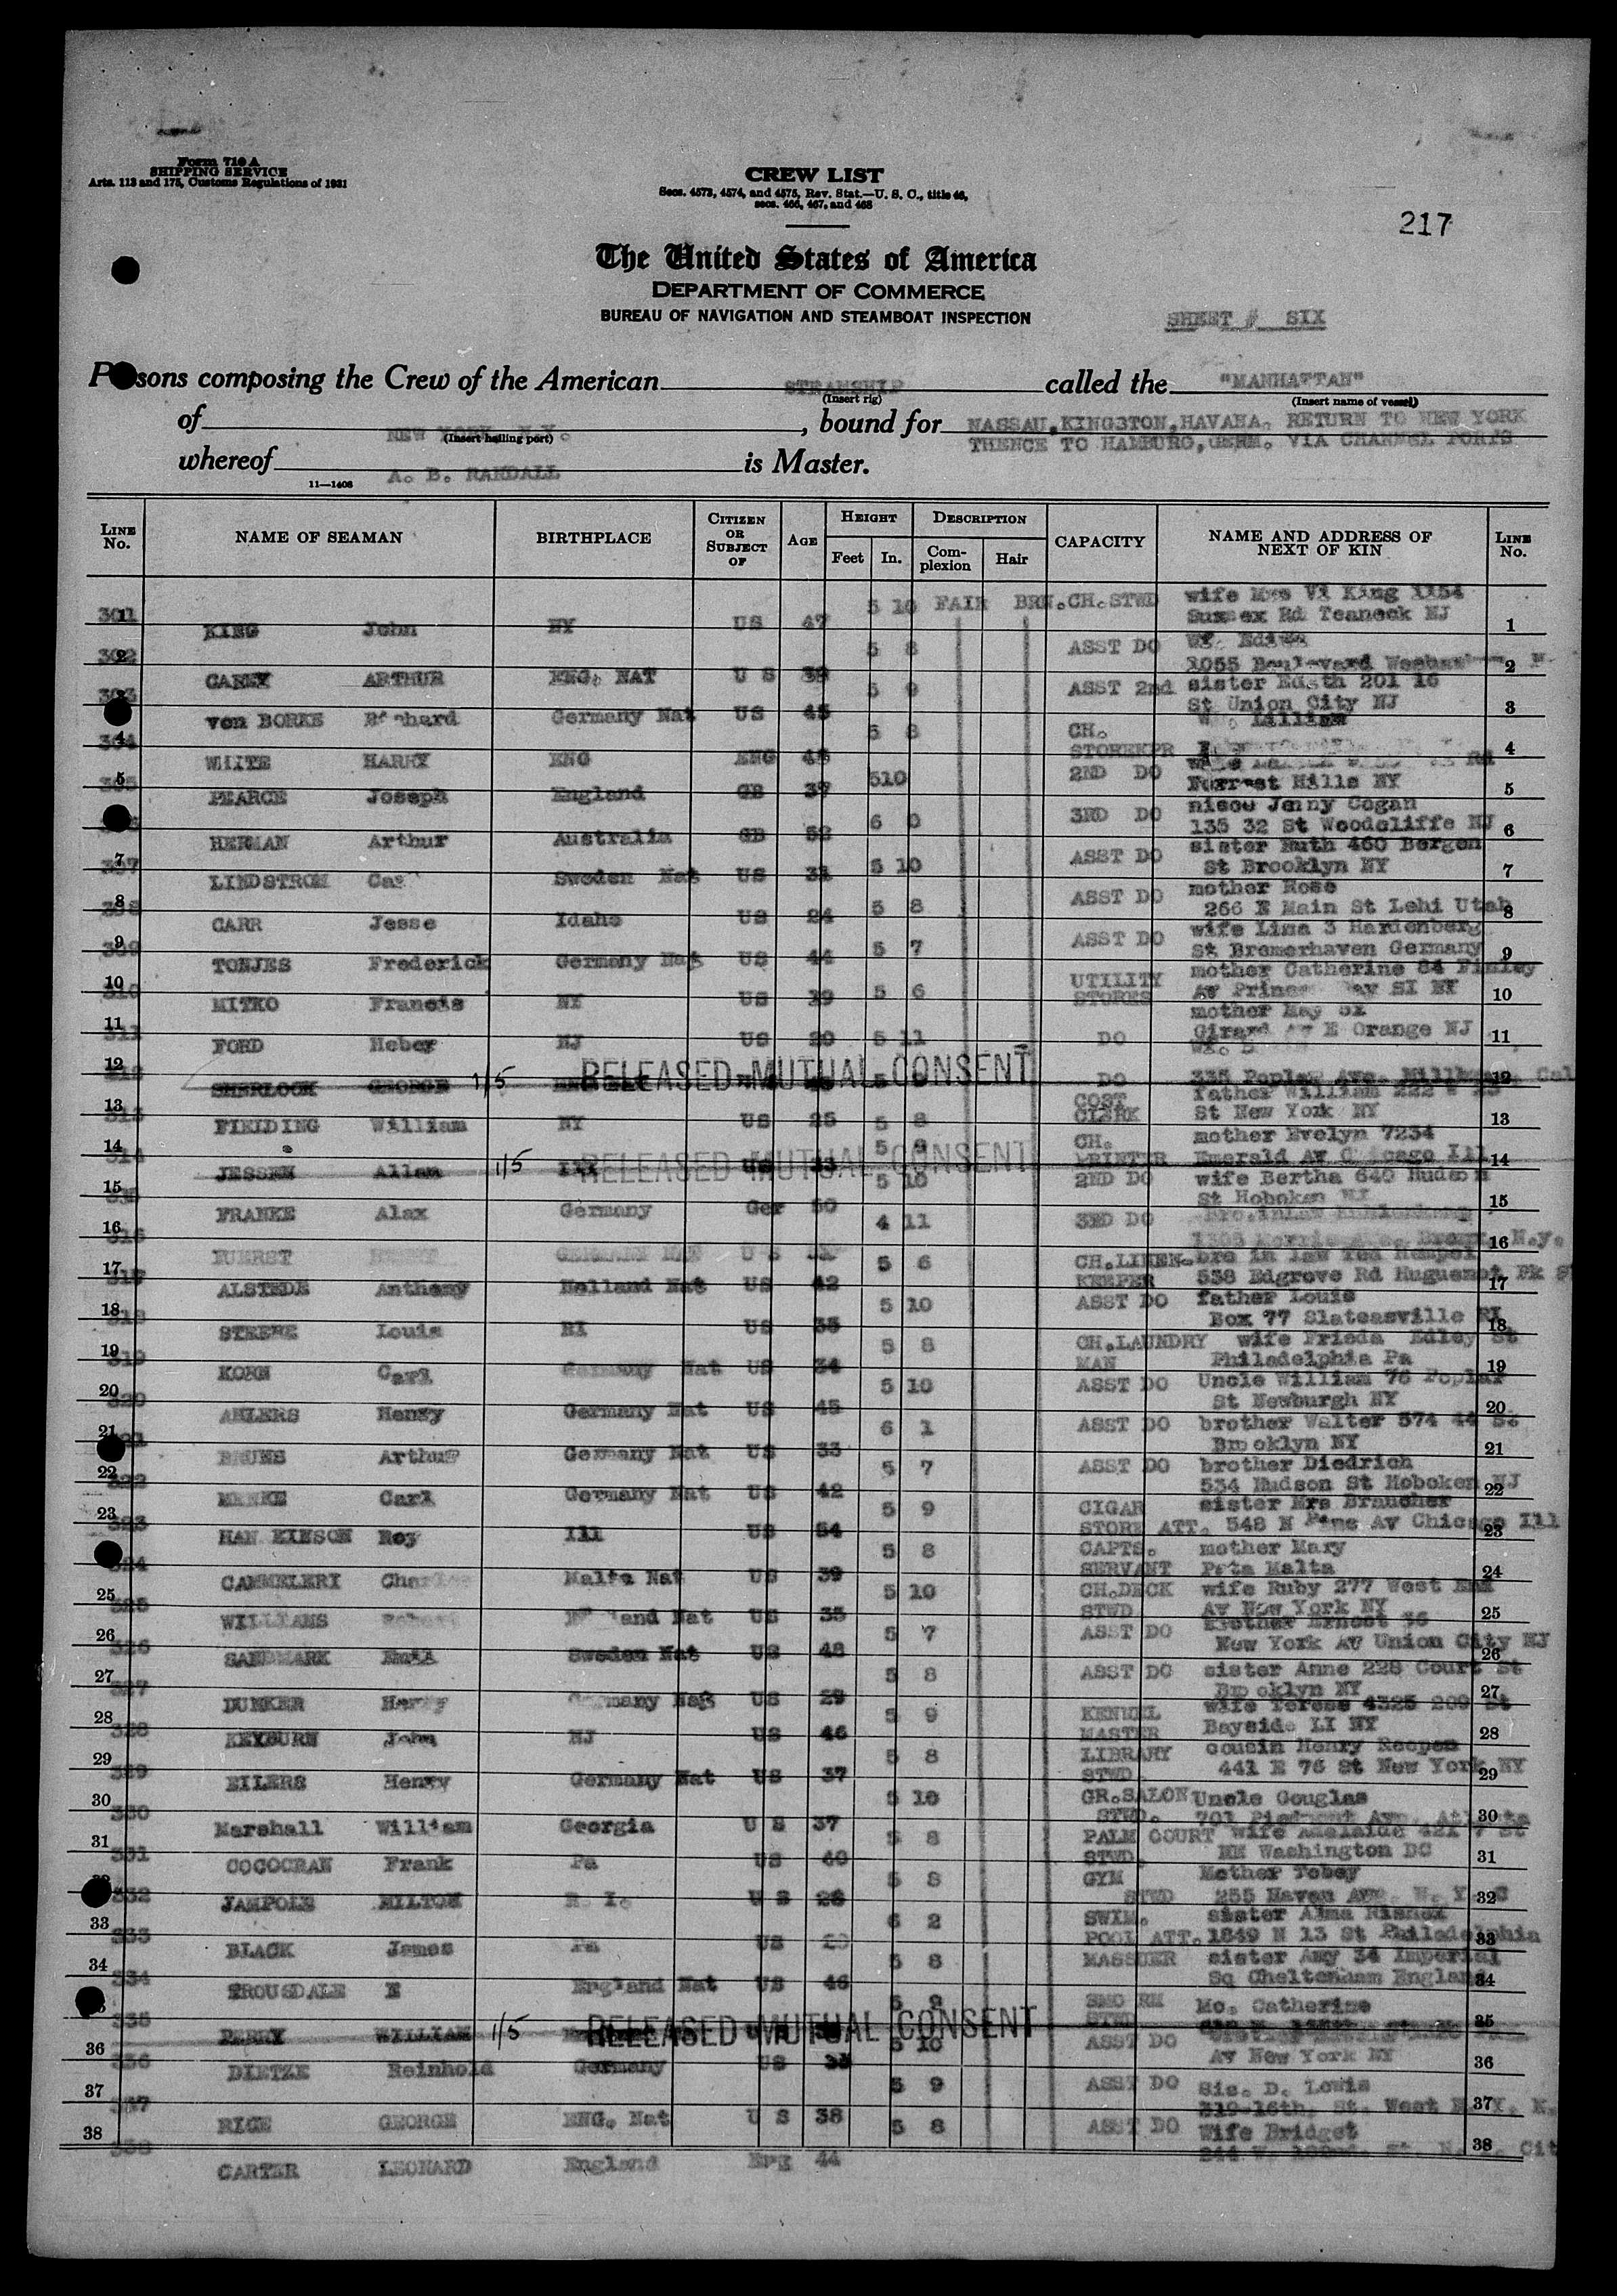 Form 710 A
SHIPPING SERVICE
Arts. 113 and 175, Customs Regulations of 1931
CREW LIST
Secs. 4573, 4574, and 4575, Rev. Stat.—U. S. C., title 46,
secs. 466, 467, and 468
217
The United States of America
DEPARTMENT OF COMMERCE
BUREAU OF NAVIGATION AND STEAMBOAT INSPECTION
SHEET # SIX
Persons composing the Crew of the American STEAMSHIP called the "MANHATTAN"
(Insert rig) (Insert name of vessel)
of NEW YORK, N.Y. , bound for NASSAU,KINGSTON,HAVANA, RETURN TO NEW YORK
(Insert hailing port) THENCE TO HAMBURG,GERM. VIA CHANNEL PORTS
whereof A. B. RANDALL is Master.
11—1408
LINE No. NAME OF SEAMAN BIRTHPLACE CITIZEN OR SUBJECT OF AGE HEIGHT Feet In. DESCRIPTION Complexion Hair CAPACITY NAME AND ADDRESS OF NEXT OF KIN LINE No.
301 KING John NY US 47 5 10 FAIR BRN. CH.STWD wife Mrs Vi King 1154 Sussex Rd Teaneck NJ 1
302 CAREY ARTHUR ENG. NAT U S 39 5 8 ASST DO 1055 Boulevard 2
303 von BORKE Richard Germany Nat US 45 5 9 ASST 2nd sister Edith 201 16 St Union City NJ 3
4 304 WHITE HARRY ENG ENG 5 8 CH. STOREKPR Lillian 4
5 305 PEARCE Joseph England GB 37 510 2ND DO Forrest Hills NY 5
HERMAN Arthur Australia GB 52 6 0 3RD DO niece Jenny Cogan 135 32 St Woodcliffe NJ 6
7 307 LINDSTROM Sweden Nat US 5 10 ASST DO sister Ruth 460 Bergen St Brooklyn NY 7
8 308 CARR Jesse Idaho US 24 5 8 ASST DO mother Rose 266 E Main St Lehi Utah 8
9 309 TONJES Frederick Germany Nat US 44 5 7 ASST DO wife Lina 3 Hardenberg St Bremerhaven Germany 9
10 310 MITKO Francis NY US 5 6 UTILITY STORES mother Catherine 84 Finley Av SI NY 10
11 311 FORD Heber NJ US 20 5 11 DO mother May Girard Av E Orange NJ 11
12 SHERLOCK GEORGE 1/5 RELEASED MUTUAL CONSENT DO 335 Poplar Ave. 12
13 313 FIELDING William NY US 25 5 8 COST CLERK father William 222 St New York NY 13
14 314 JESSEN Allan 1/5 RELEASED MUTUAL CONSENT 5 9 CH. PRINTER mother Evelyn 7234 Emerald Av Chicago Ill 14
15 FRANKE Alex Germany Ger 50 5 10 2ND DO wife Bertha 640 Hudson St Hoboken NJ 15
16 316 FUERST U S 4 11 3RD DO Bro.inLaw Bronx, N.Y. 16
17 317 ALSTEDE Anthony Holland Nat US 42 5 6 CH.LINEN- KEEPER bro in law Ted Hempel 538 Edgrove Rd Huguenot Pk 17
18 318 STEERE Louis RI US 35 5 10 ASST DO father Louis Box 77 Slatersville RI 18
19 319 KORN Carl Germany Nat US 34 5 8 CH.LAUNDRY MAN wife Frieda Edley St Philadelphia Pa 19
20 320 AHLERS Henry Germany Nat US 45 5 10 ASST DO Uncle William 76 Poplar St Newburgh NY 20
21 321 BRUNS Arthur Germany Nat US 33 6 1 ASST DO brother Walter 574 44 St Brooklyn NY 21
22 322 MENKE Carl Germany Nat US 42 5 7 ASST DO brother Diedrich 534 Hudson St Hoboken NJ 22
23 323 HAN KINSON Roy Ill US 54 5 9 CIGAR STORE ATT. sister Mrs Braucher 548 N Pine Av Chicago Ill 23
324 CAMMELERI Charles Malta Nat US 39 5 8 CAPTS. SERVANT mother Mary Malta 24
25 325 WILLIAMS Robert US 35 5 10 CH.DECK STWD wife Ruby 277 West End Av New York NY 25
26 326 SANDMARK Emil Sweden Nat US 48 5 7 ASST DO brother Ernest 36 New York Av Union City NJ 26
27 327 DUNKER Harry Germany Nat US 29 5 8 ASST DO sister Anne 228 Court St Brooklyn NY 27
28 328 KEYBURN John NJ US 46 5 9 KENNEL MASTER wife Terese 4325 209 St Bayside LI NY 28
29 329 EILERS Henry Germany Nat US 37 5 8 LIBRARY STWD cousin Henry Roepen 441 E 76 St New York NY 29
30 330 Marshall William Georgia U S 37 5 10 GR.SALON STWD. Uncle Douglas 701 Piedmont Ave. Atlanta 30
31 331 COCOCRAN Frank Pa US 40 5 8 PALM COURT STWD. wife Adelaide 421 7 St NE Washington DC 31
332 JAMPOLE MILTON R. I. U S 26 5 8 GYM STWD Mother Tobey 255 Haven Ave. N. Y. C 32
33 333 BLACK James Pa US 6 2 SWIM. POOL ATT. sister Alma 1849 N 13 St Philadelphia 33
34 334 TROUSDALE E England Nat US 46 5 8 MASSUER sister Amy 34 Imperial Sq Cheltenham England 34
335 PERRY WILLIAM 1/5 RELEASED MUTUAL CONSENT 5 9 SMO RM STWD Mo. Catherine 35
36 336 DIETZE Reinhold Germany US 5 10 ASST DO Av New York NY 36
37 337 RICE GEORGE ENG. Nat U S 38 5 9 ASST DO Sis. D. Lewis 319-16th. St. West N. Y. 37
38 338 CARTER LEONARD England Eng 44 5 8 ASST DO Wife Bridget 38